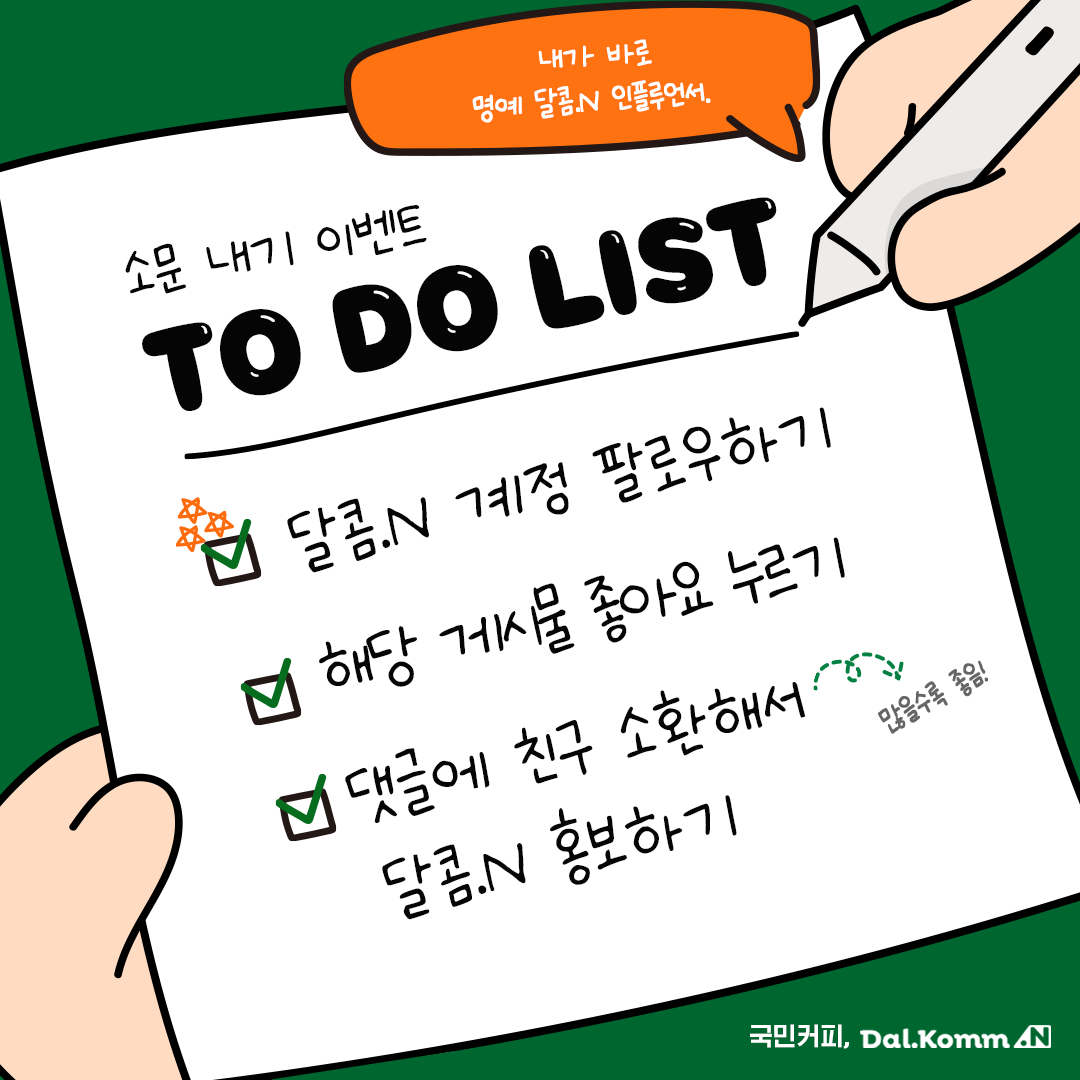 내가 바로
명예 달콤.N 인플루언서.
소문 내기 이벤트
TO DO LIST
달콤.N 계정 팔로우하기
해당 게시물 좋아요 누르기
댓글에 친구 소환해서
많을수록 좋음!
달콤.N 홍보하기
국민커피, Dal.Komm .N